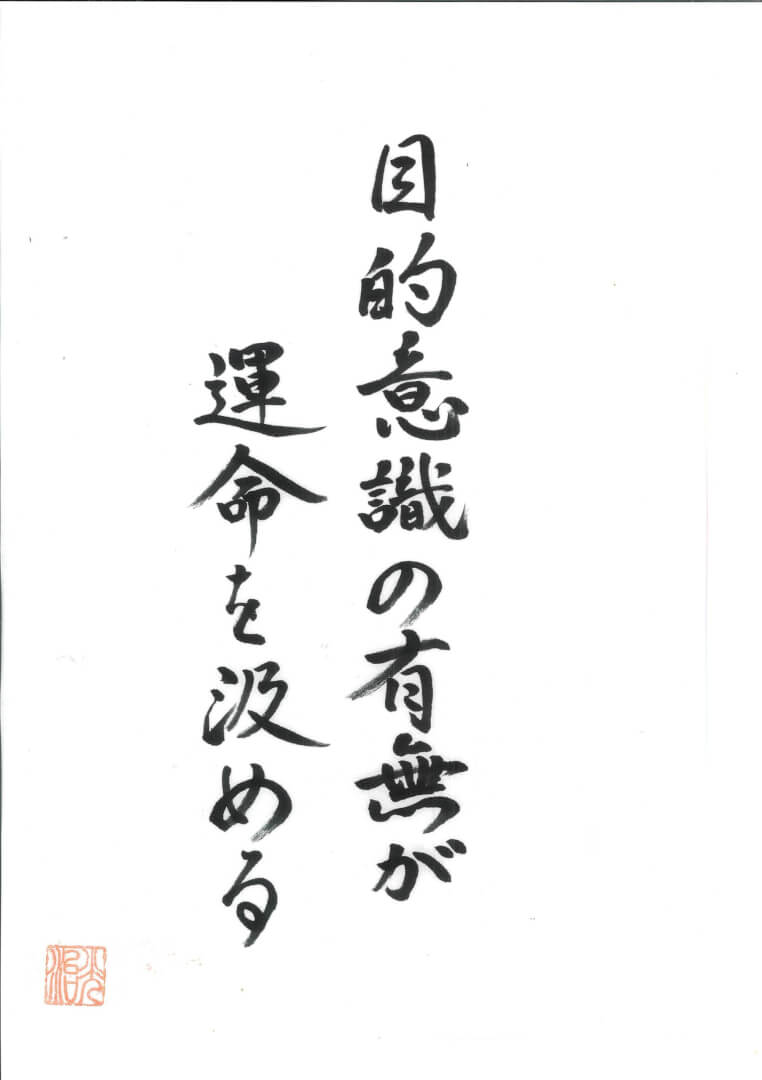 目的意識の有無が
運命を汲める